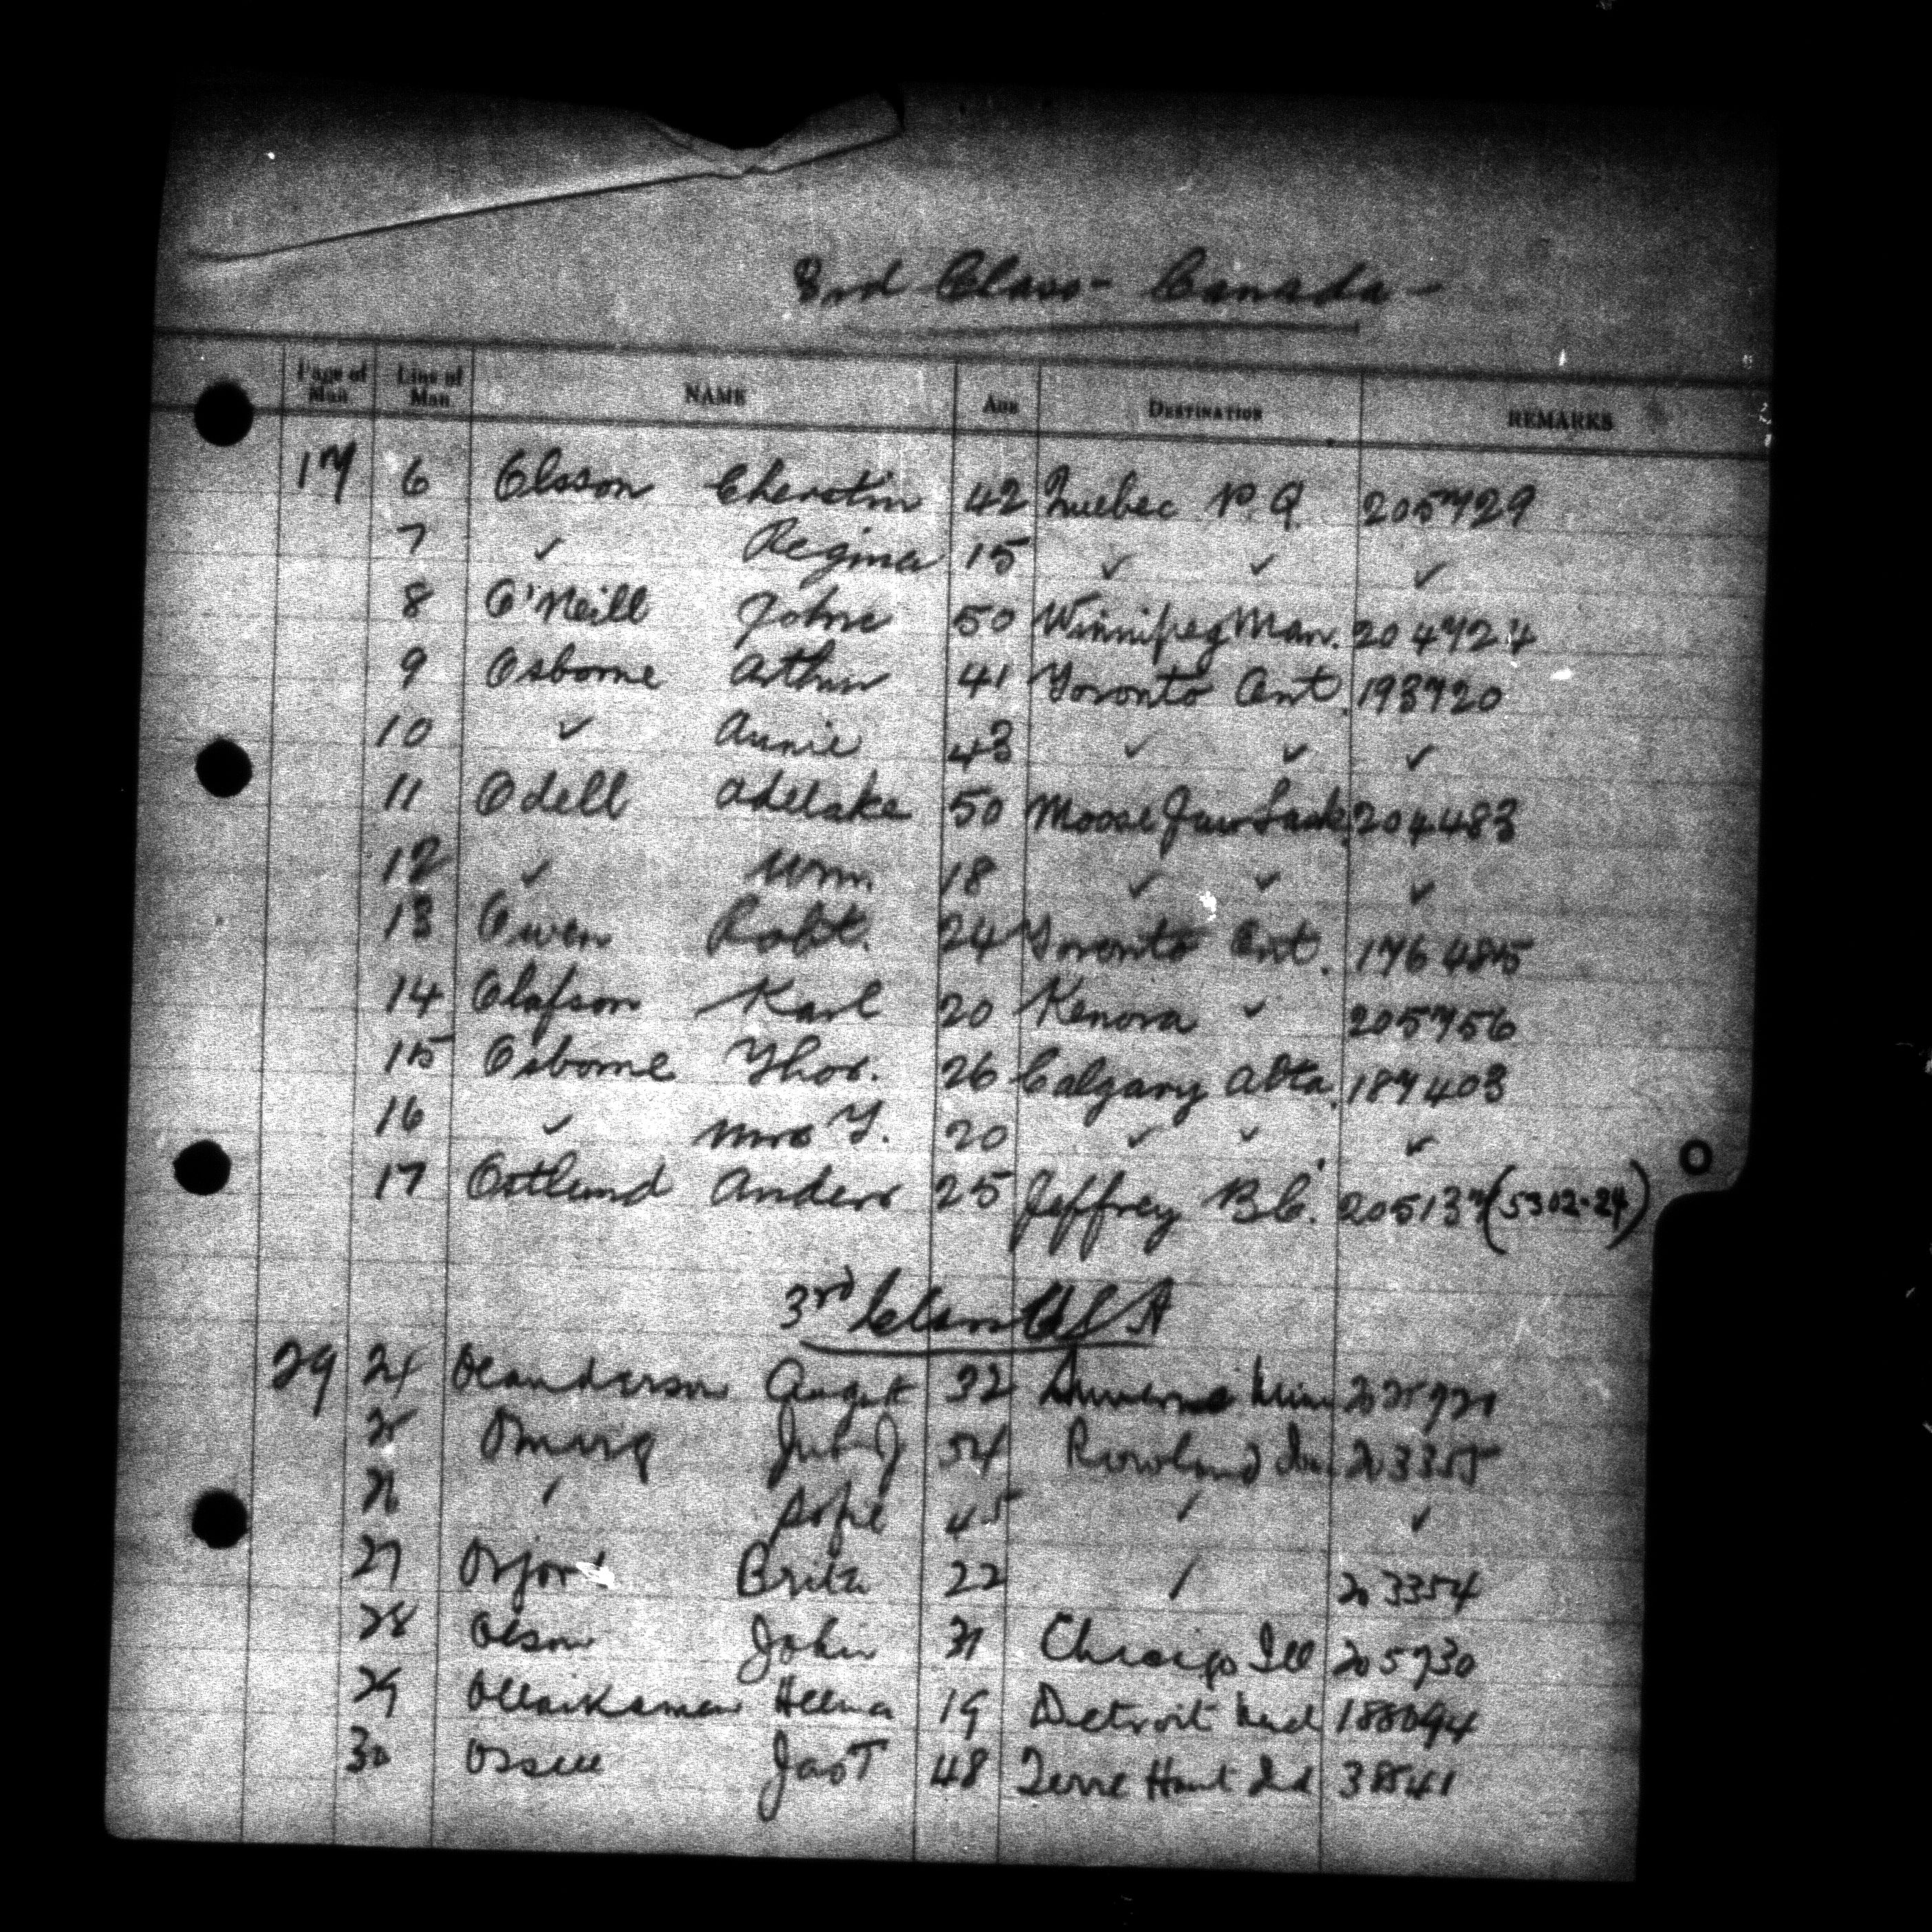 3rd Class - Canada -
Page of Man Line of Man NAME AGE DESTINATION REMARKS
17 6 Olsson Cherstin 42 Quebec P.Q. 205729
7 ✓ Regina 15 ✓ ✓ ✓
8 O'Neill John 50 Winnipeg Man. 204724
9 Osborne Arthur 41 Toronto Ont. 193720
10 ✓ Annie 43 ✓ ✓ ✓
11 Odell Adelake 50 Moose Jaw Sask. 204483
12 ✓ Wm. 18 ✓ ✓ ✓
13 Owen Robt. 24 Toronto Ont. 176485
14 Olafson Karl 20 Kenora ✓ 205756
15 Osborne Thos. 26 Calgary Alta. 187403
16 ✓ Mrs T. 20 ✓ ✓ ✓
17 Ostlund Anders 25 Jeffrey B.C. 205137 (5302-24)
O
3rd Class USA
29 24 Oleanderson August 32 Minn
25 54 Rowland 203355
26 " Sofie 45 " ✓
27 Brita 22 " 203354
28 Olson John 31 Chicago Ill 205730
29 Helena 19 Detroit Mich 188094
30 Jas T 48 Terre Haut Ind 38541